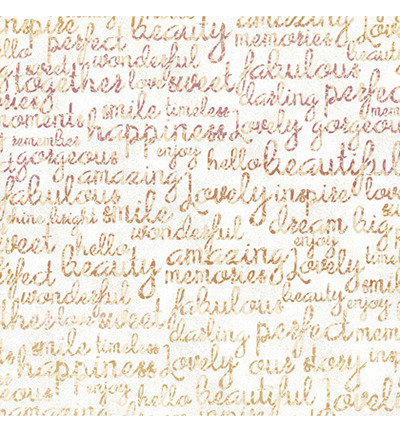 inspire beauty amazing Lovely
hello perfect memories beautiful
sweet wonderful
together love sweet fabulous
darling perfect
moments smile timeless
happiness Lovely gorgeous
remember
gorgeous enjoy hello beautiful
amazing
fabulous Lovely inspire love
shine bright smile
wonderful dream big
sweet hello enjoy
beauty amazing Lovely timeless
perfect memories smile
wonderful fabulous beauty enjoy
love sweet
darling perfect memories
smile timeless
happiness Lovely our story
gorgeous enjoy hello beautiful Lovely
amazing